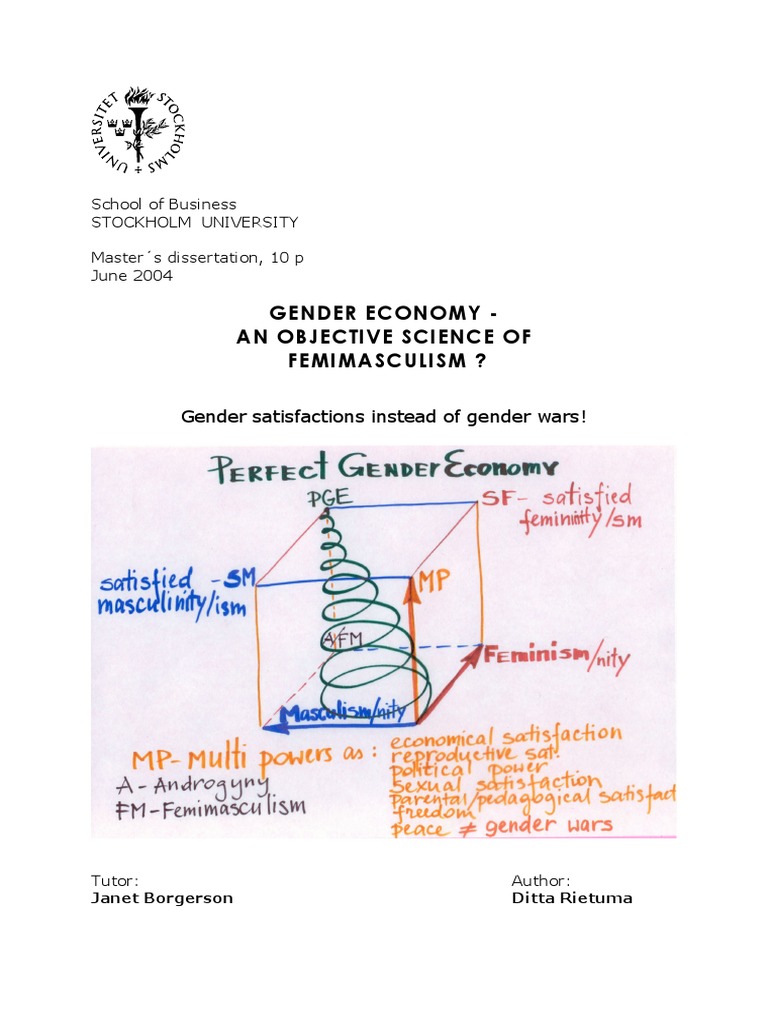 STOCKHOLMS UNIVERSITET
School of Business
STOCKHOLM UNIVERSITY
Master´s dissertation, 10 p
June 2004
GENDER ECONOMY -
AN OBJECTIVE SCIENCE OF
FEMIMASCULISM ?
Gender satisfactions instead of gender wars!
PERFECT GENDER ECONOMY
PGE
SF- satisfied
feminity/sm
satisfied - SM
masculinity/ism
MP
A/FM
Feminism/nity
Masculism/nity
MP- Multi powers as:
economical satisfaction
reproductive sat.
political power
sexual satisfaction
parental/pedagogical satisfact
freedom
peace ≠ gender wars
A - Androgyny
FM - Femimasculism
Tutor:
Janet Borgerson
Author:
Ditta Rietuma